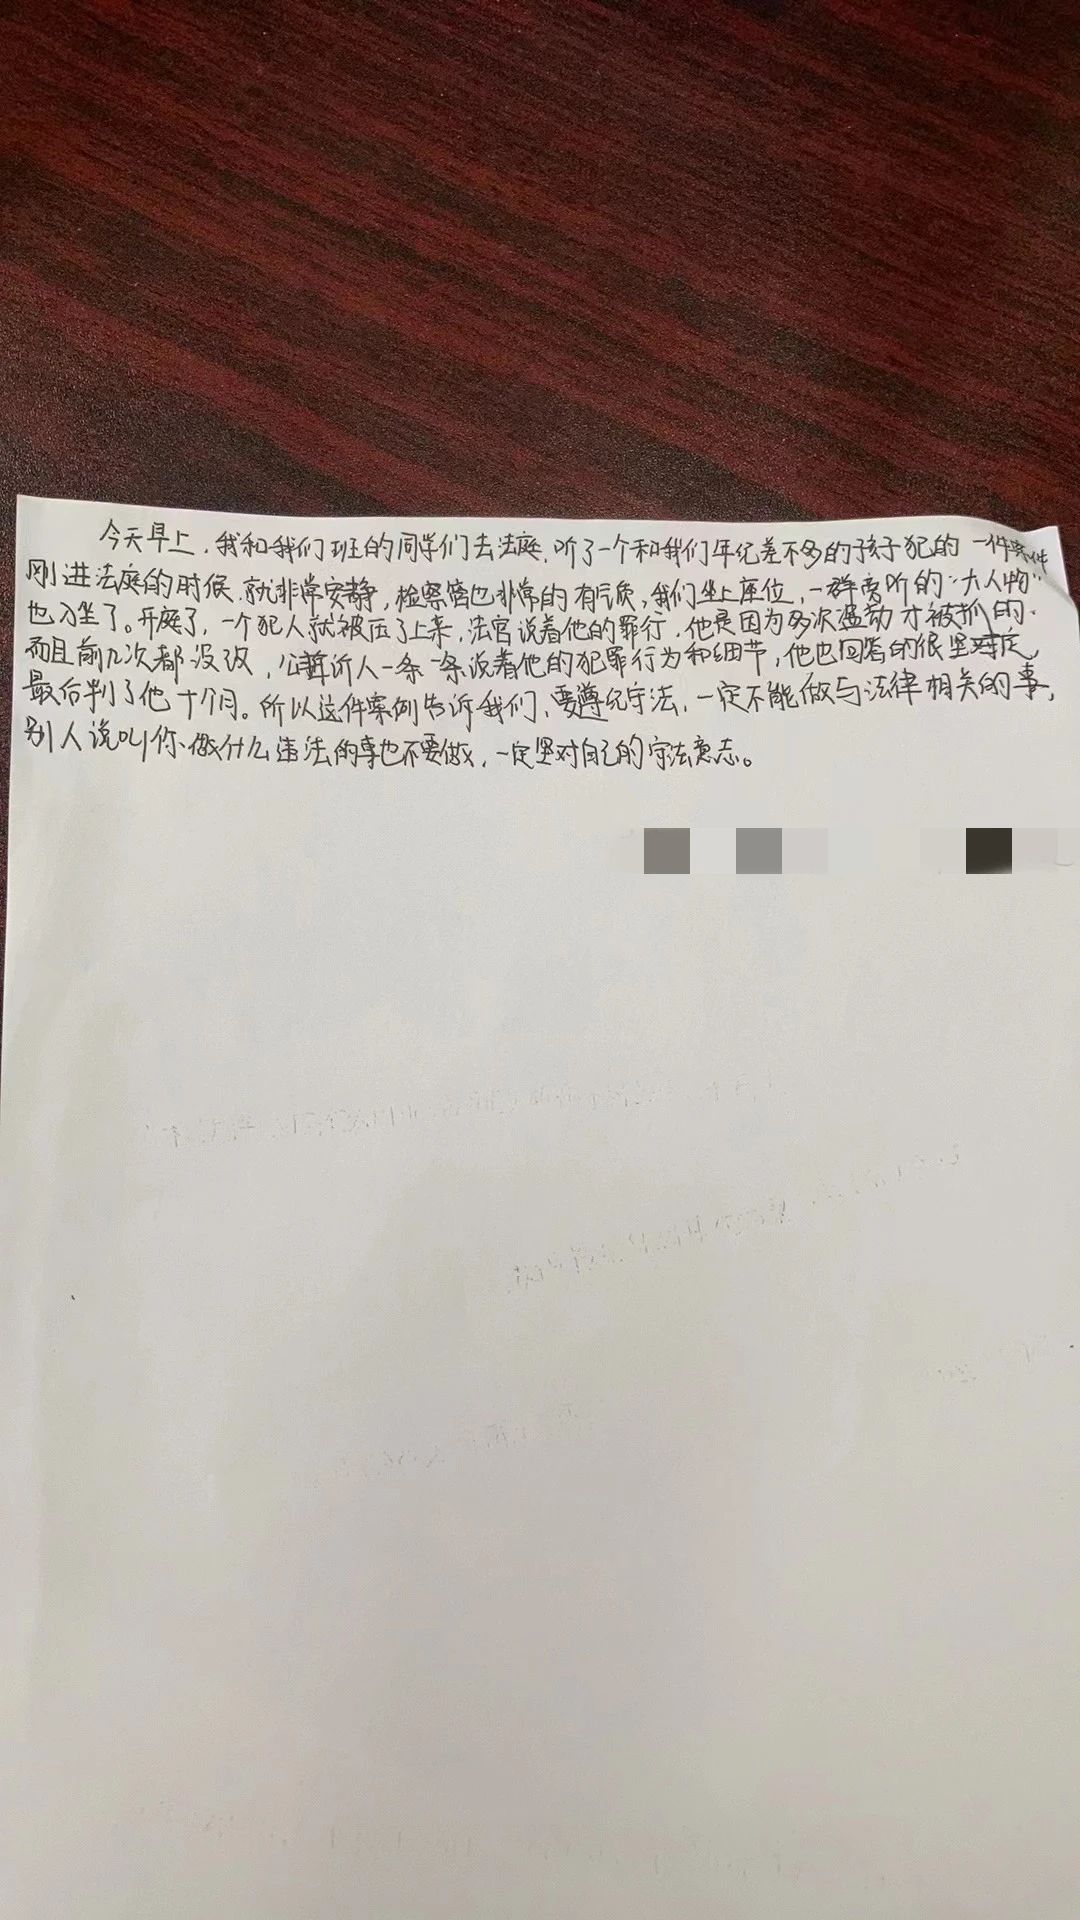 今天早上，我和我们班的同学们去法庭，听了一个和我们年纪差不多的孩子犯的一件案件
刚进法庭的时候，就非常安静，检察官也非常的有气质，我们坐上座位，一群旁听的“大人物”
也入坐了。开庭了，一个犯人就被压了上来，法官说着他的罪行，他是因为多次盗动才被抓的.
而且前几次都没改，公诉人一条一条说着他的犯罪行为和细节，他也回答的很坚定，
最后判了他十个月。所以这件案例告诉我们，要遵纪守法，一定不能做与法律相关的事，
别人说叫你做什么违法的事也不要做，一定坚对自己的守法意志。